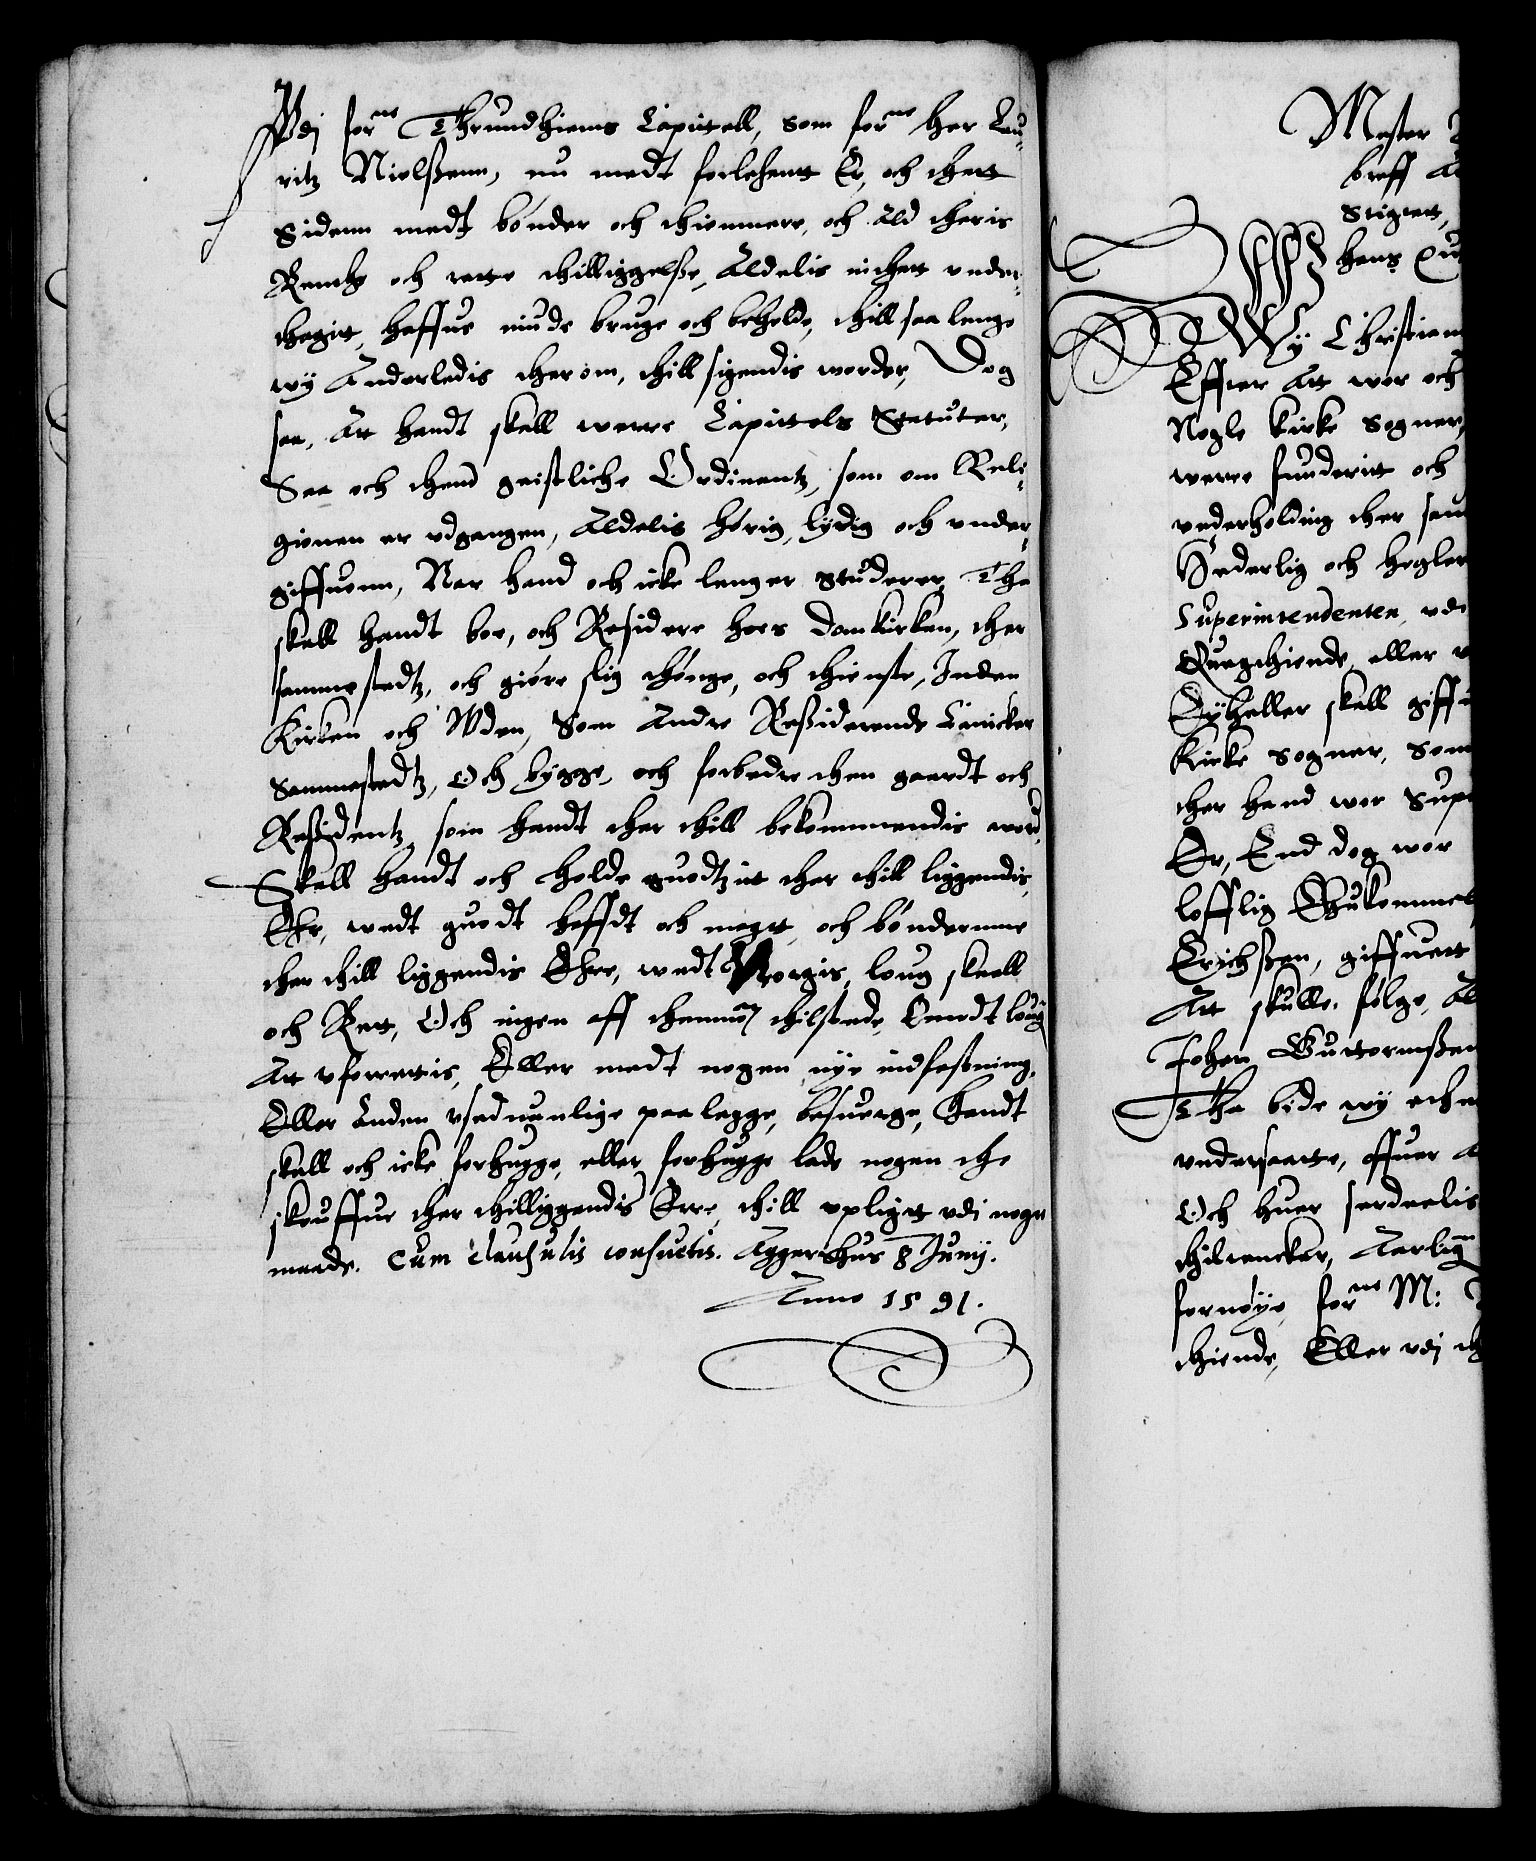 Vdj forne Thrundhiems Capitell, som forne Her Lau¬
ritz Nielssenn, nu medt forlehent Er, och thett
Sidenn medt bønder och thiennere, och Ald theris
Renthe och rette thilliggelsse, Aldelis inthett vnder¬
thagit, haffue niude bruge och beholde, thill saa lenge
wij Anderledis therom, thill sigendis worder, Dog
saa, At handt skall werre Capittels Statuter,
Saa och thend geistliche Ordinantz, som om Reli¬
gionen er vdgangen, Aldelis hørig, lydig och vnder¬
giffuenn, Nar hand och icke lenger studerer, Tha
skall handt boe, och Residere hoes Domkirken, ther
sammestedtz, och giøre slig thønge, och thieniste, Inden
Kirken och Vden, Som Andre Ressiderende Canicker
Sammestedtz, Och bygge, och forbedre then gaardt och
Ressidentz som handt ther thill bekommendis word,
Skall handt och holde guodtzit ther thill liggendis,
Ehr, wedt guodt hefft och magt, och bønderne
ther thill liggendis Ehre, wedt Norgis, loug skaell
och Rett, Och ingen aff thennom thilstede, Emodt loug
At vforrettis, Eller medt nogen nye indfestning,
Eller Anden vseduanlige paalegge, besuerge, Handt
skall och icke forhugge, eller forhugge lade nogen the
skouffue ther thilliggendis Erre, thill vpligt vdj nogen
maade. Cum clausulis consuetis. Aggershus 8 Junij.
Anno 1591.
Mester
breff
Stigtet,
hans
Wij Christian
Effter At wor och
Nogle kirke Sogner,
were funderitt och
vnderholding ther sam
Hederlig och høgler
Superintendenten vdi
Quegthiende eller
kircke Sogner, Som
ther hand wor Supe
Er, End dog wor
lofflig Ihukommel
Erichssen, giffuett
Att skulle følge, Al
Johan Guttormssen
Tha bede wij ethe
vndersaatte, offuer A
Och huer serdeelis
thiltencker, Aarlig
fornøye forne M:
thiende, Eller vdj th